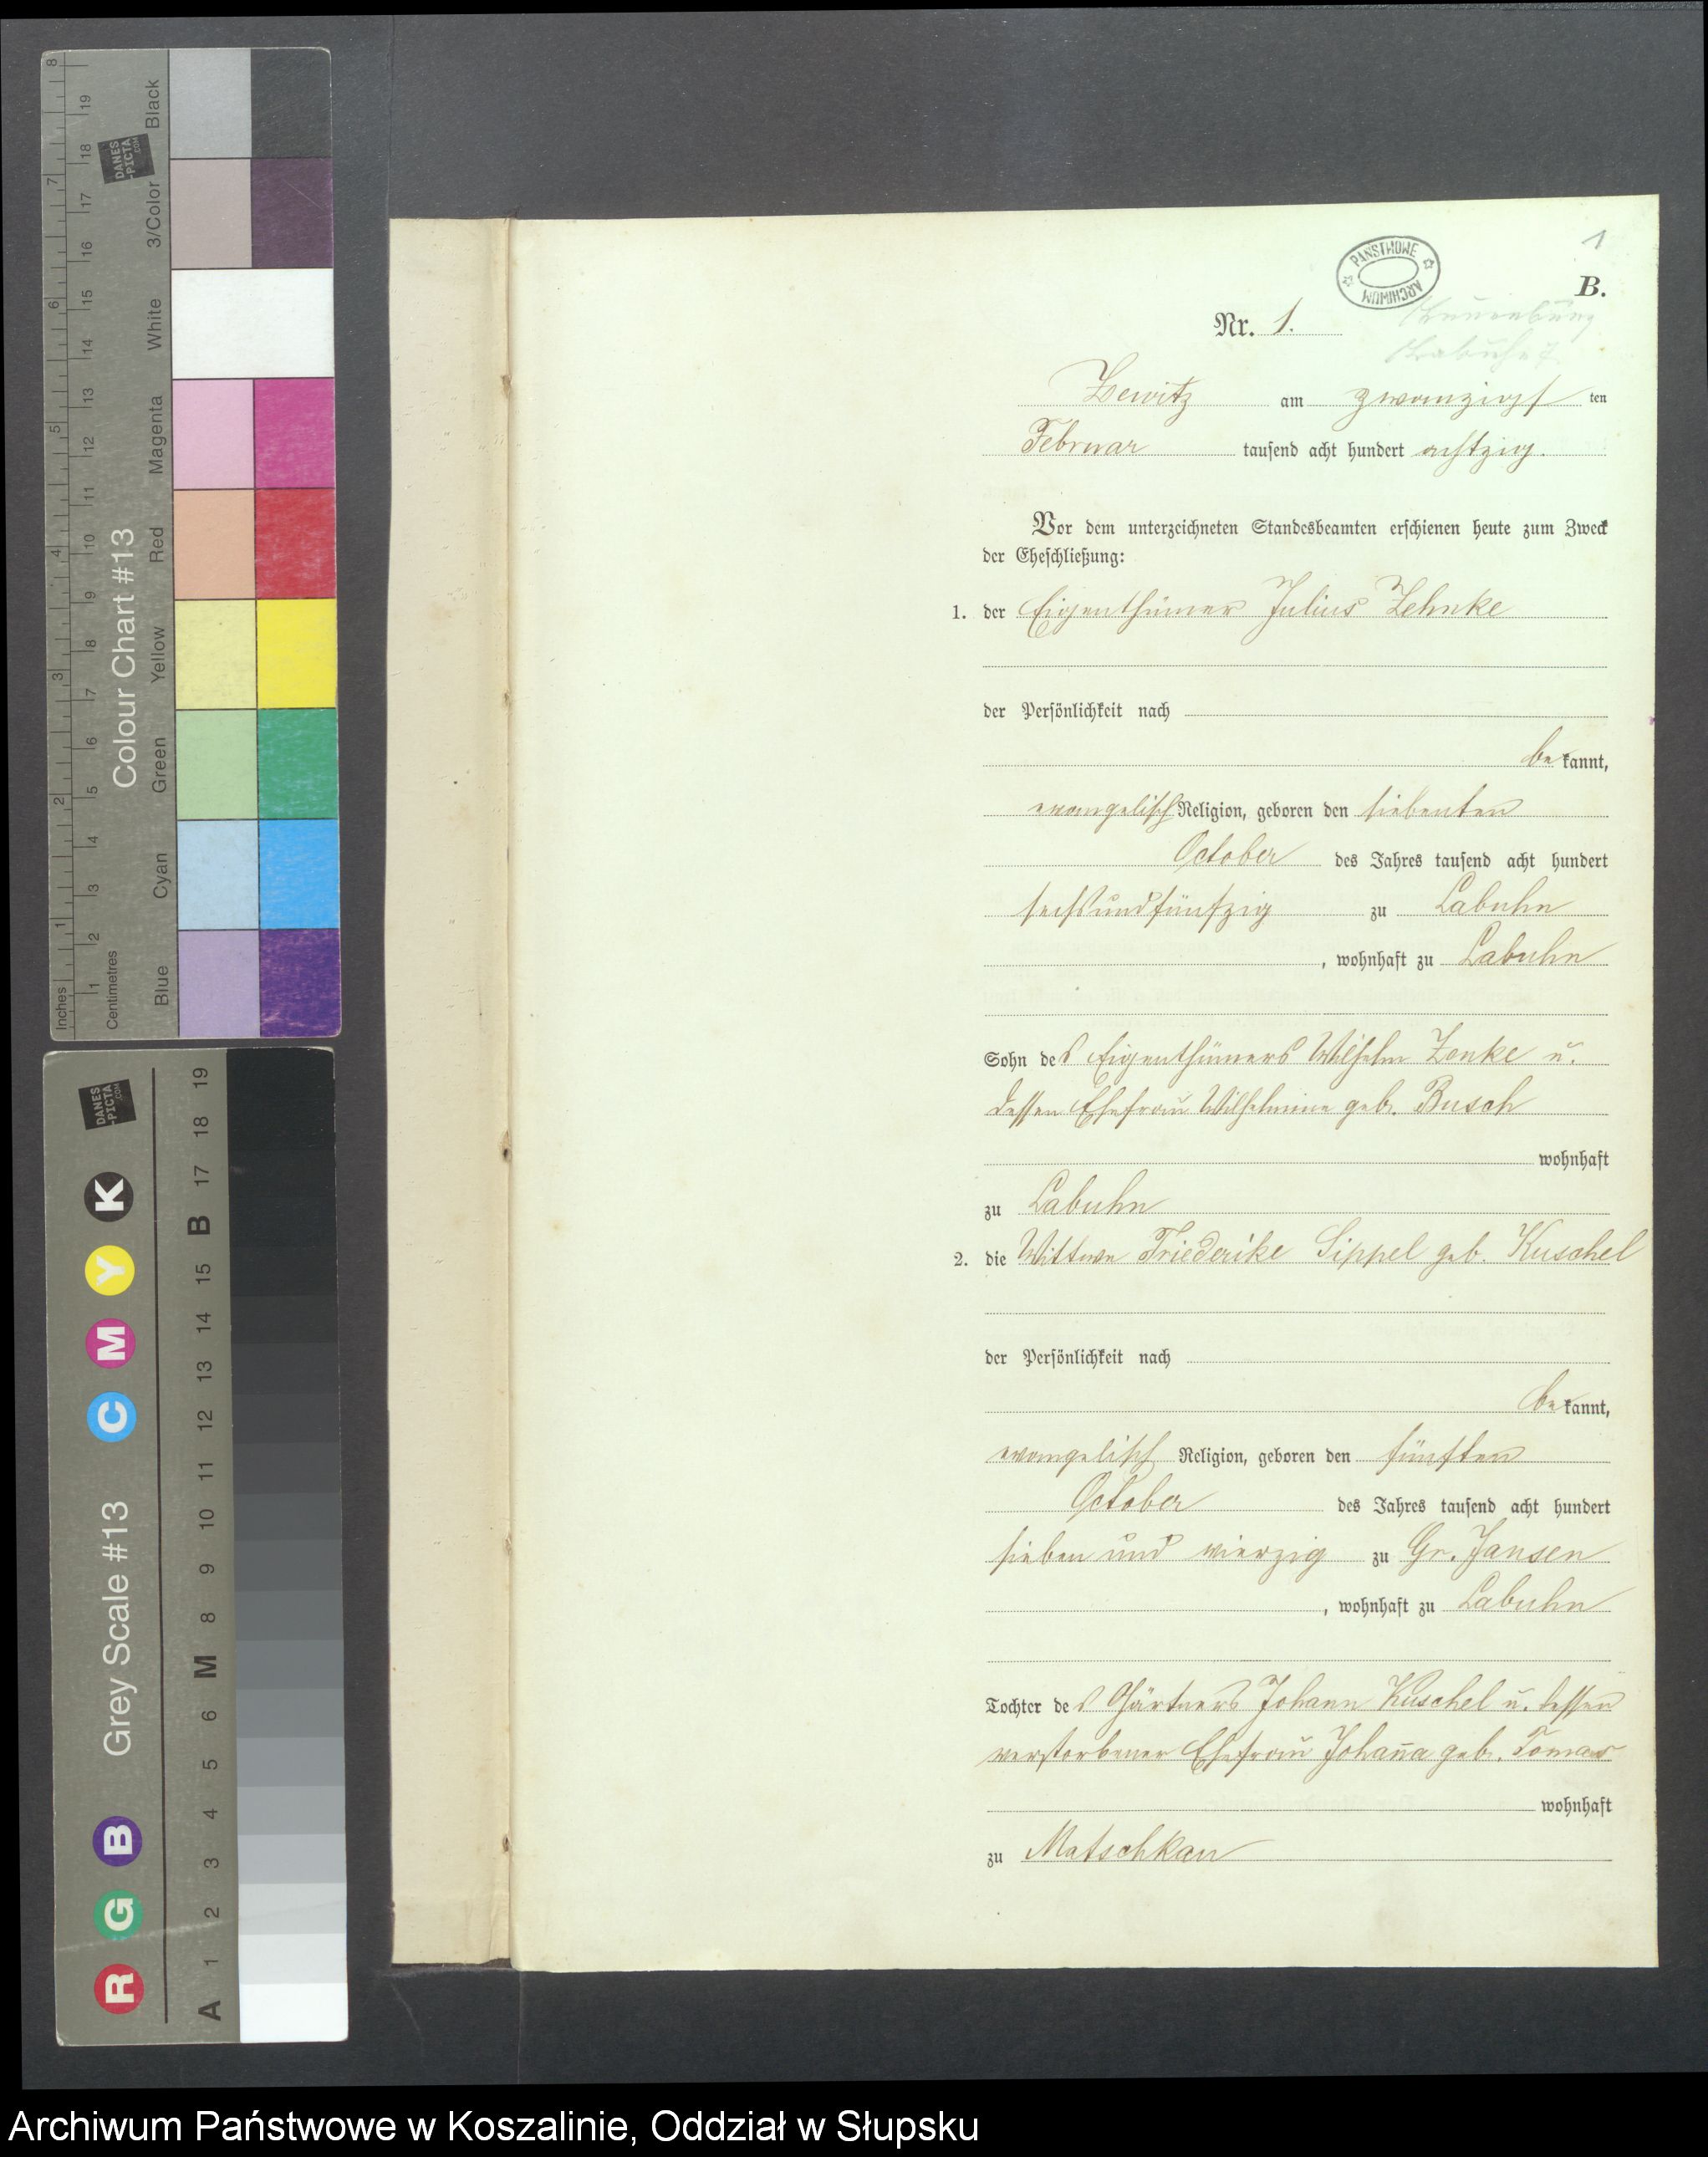 8 19 18 17 16 15 14 13 12 11 10 9 8 7 6 5 4 3 2 1
7 6 5 4 3 2 1
Inches
Centimetres
DANES
-PICTA
.COM
Colour Chart #13
Black
3/Color
White
Magenta
Red
Yellow
Green
Cyan
Blue
DANES
-PICTA
.COM
Grey Scale #13
K
Y
M
C
B
G
R
19
18
17
B
15
14
13
12
11
10
9
8
M
6
5
4
3
2
1
A
1
PAŃSTWOWE
ARCHIWUM
B.
Nr. 1.
Zewitz am zwanzigsten
Februar tausend acht hundert achtzig.
Vor dem unterzeichneten Standesbeamten erschienen heute zum Zweck
der Eheschließung:
1. der Eigenthümer Julius Zehnke
der Persönlichkeit nach
bekannt,
evangelisch Religion, geboren den siebenten
October des Jahres tausend acht hundert
sechsundfünfzig zu Labuhn
, wohnhaft zu Labuhn
Sohn des Eigenthümers Wilhelm Zenke u.
dessen Ehefrau Wilhelmine geb. Busch
wohnhaft
zu Labuhn
2. die Wittwe Friederike Sippel geb. Kuschel
der Persönlichkeit nach
bekannt,
evangelisch Religion, geboren den fünften
October des Jahres tausend acht hundert
sieben und vierzig zu Gr. Jansen
, wohnhaft zu Labuhn
Tochter des Gärtners Johann Kuschel u. dessen
verstorbener Ehefrau Johanna geb. Tomas
wohnhaft
zu Matschkau
Archiwum Państwowe w Koszalinie, Oddział w Słupsku